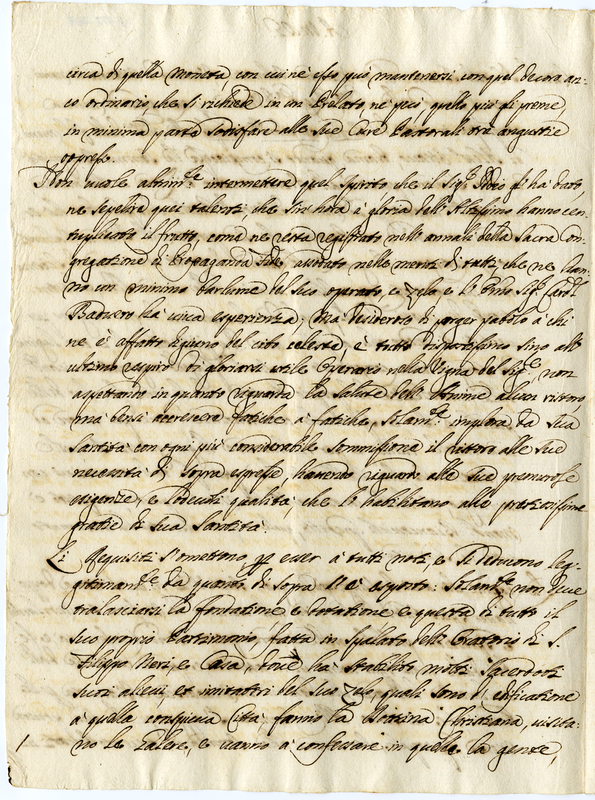 circa di quella moneta, con cui nè esso può mantenersi con quel decoro an-
co ordinario, che si richiede in un Prelato, ne può quello più gli preme,
in minima parte sodisfare alle sue Cure Pastorali trà angustie
oppresso.
Non vuole altrim.te intermettere quel spirito che il Sig.r Iddio gli hà dato,
ne sepelire quei talenti, che sin hora à gloria dell' Altissimo hanno cen-
tuplicato il frutto, come ne resta registrato nell' annali della Sacra Con-
gregatione di Propaganda Fide, assodato nelle menti di tutti, che ne han-
no un minimo barlume del suo operato, e zelo, e l' Sig.r Card.l
hà viva esperienza; Mà desideroso di porger pabolo à chi
ne è affatto digiuno del cibo celeste, è tutto dispostissimo sino all'
ultimo respiro di gloriarsi utile Operario nella Vigna del Sig.re, non
aspettando in quanto riguarda la salute dell' Anime alcun ristoro,
mà bensi accrescere fatiche à fatiche, Solam.te implora da Sua
Santità con ogni più considerabile sommissione il ristoro alle sue
necessità di sopra espresse, havendo riguardo alle sue premurose
esigenze, e lodevoli qualità, che l' habilitano alle pretiosissime
gratie di Sua Santità.
Li Requisiti s' omettono p esser à tutti noti, e si deducono leg-
gitimam.te da quanto di sopra s' è esposto: Solam.te non deve
tralasciarsi la fondatione e dotatione e questa di tutto il
suo proprio Patrimonio, fatta in Spalato dell' Oratorio di S.
Filippo Neri, e Casa, dove hà stabilito molti Sacerdoti
suoi allevi, et imitatori del suo zelo, quali sono d' edificatione
à quella conspicua Città, fanno la Dottrina Christiana, visita-
no le Galere, e vanno à confessare in quelle la gente,